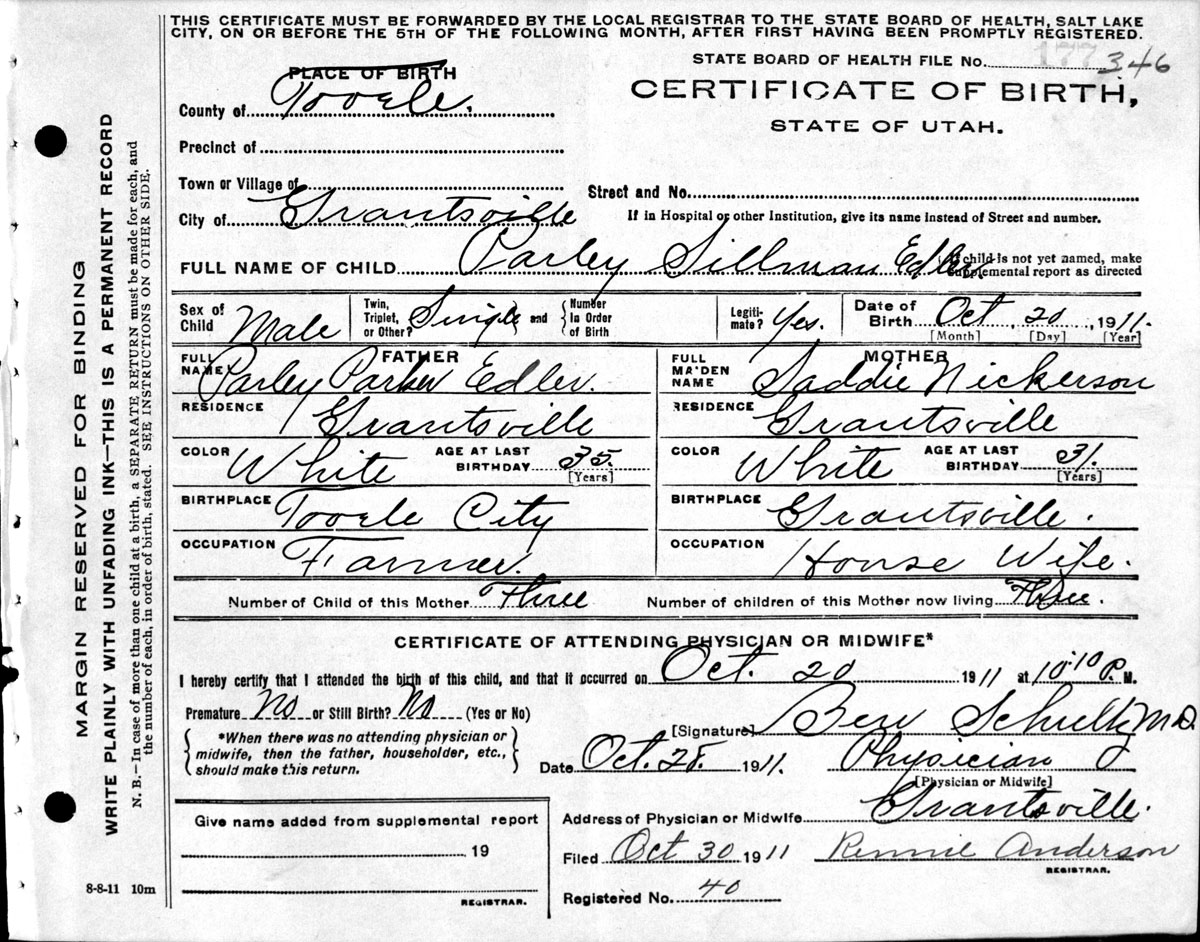 THIS CERTIFICATE MUST BE FORWARDED BY THE LOCAL REGISTRAR TO THE STATE BOARD OF HEALTH, SALT LAKE
CITY, ON OR BEFORE THE 5TH OF THE FOLLOWING MONTH, AFTER FIRST HAVING BEEN PROMPTLY REGISTERED.
STATE BOARD OF HEALTH FILE No. 177 346
PLACE OF BIRTH
CERTIFICATE OF BIRTH,
County of Tooele.
STATE OF UTAH.
Precinct of
Town or Village of
Street and No.
City of Grantsville
If in Hospital or other Institution, give its name instead of Street and number.
FULL NAME OF CHILD Parley Sillman Edler
If child is not yet named, make
supplemental report as directed
Sex of Child Male
Twin, Triplet, or Other? Single and { Number In Order of Birth
Legiti- mate? Yes.
Date of Birth Oct, 20, 1911.
[Month] [Day] [Year]
FATHER
FULL NAME Parley Parker Edler.
RESIDENCE Grantsville
COLOR White AGE AT LAST BIRTHDAY 35.
[Years]
BIRTHPLACE Tooele City
OCCUPATION Farmer.
MOTHER
FULL MA'DEN NAME Saddie Nickerson
RESIDENCE Grantsville
COLOR White AGE AT LAST BIRTHDAY 31.
[Years]
BIRTHPLACE Grantsville.
OCCUPATION House Wife.
Number of Child of this Mother Three Number of children of this Mother now living Three.
CERTIFICATE OF ATTENDING PHYSICIAN OR MIDWIFE*
I hereby certify that I attended the birth of this child, and that it occurred on Oct. 20 1911 at 10:10 P. M.
Premature No or Still Birth? No (Yes or No)
*When there was no attending physician or
midwife, then the father, householder, etc.,
should make this return.
[Signature] Ben M.D.
Date Oct. 28. 1911. Physician
[Physician or Midwife]
Address of Physician or Midwife Grantsville.
Filed Oct 30 1911 Rennie Anderson
REGISTRAR.
Registered No. 40
Give name added from supplemental report
19
REGISTRAR.
8-8-11 10m
MARGIN RESERVED FOR BINDING
WRITE PLAINLY WITH UNFADING INK—THIS IS A PERMANENT RECORD
N. B.—In case of more than one child at a birth, a SEPARATE RETURN must be made for each, and the
number of each, in order of birth, stated. SEE INSTRUCTIONS ON OTHER SIDE.